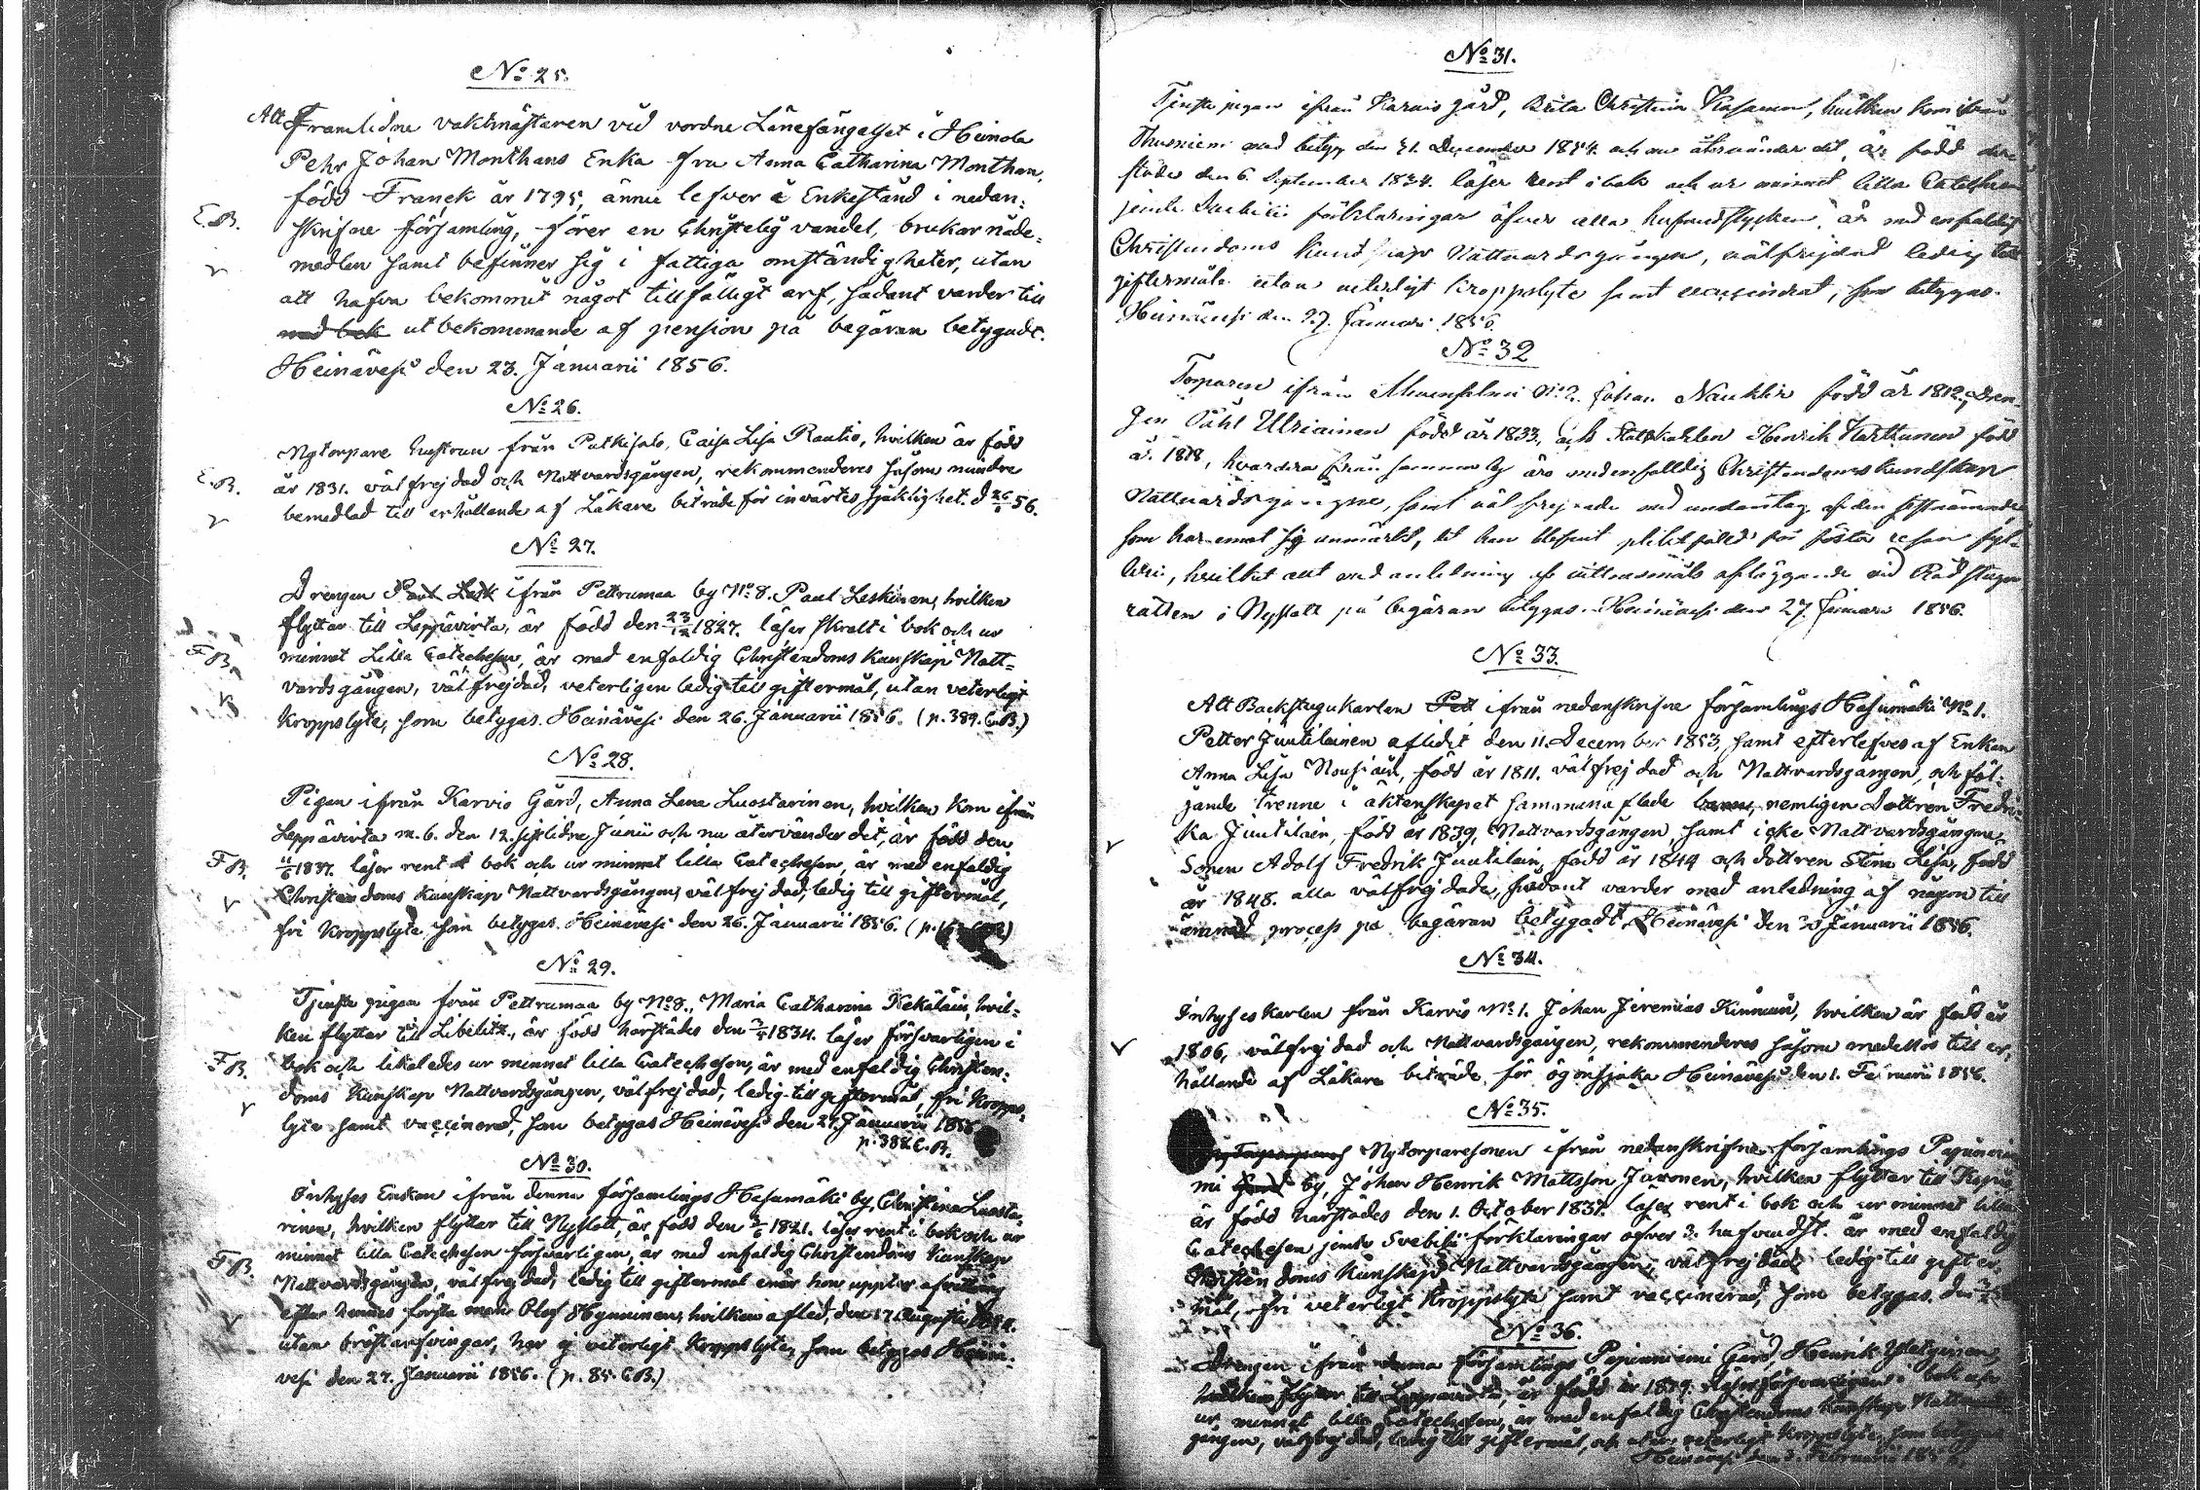 No 25.
Att Framlidne vaktmästaren vid vordne Länefängelset i Heinola
Pehr Johan Monthans Enka fru Anna Catharina Monthan,
född Franck år 1795, ännu lefver i Enkestånd i nedan-
E.B. skrifne församling, förer en Christelig vandel, brukar nåde-
medlen samt befinner sig i fattiga omständigheter, utan
att hafva bekommit något tillfälligt arf, sådant varder till
utbekommande af pension på begäran betygadt.
Heinävesi den 23. Januarii 1856.
No 26.
Nytorpare hustrun från Putkisalo, Caisa Lisa Rautio, hvilken är född
E.B. år 1831. välfrejdad och Nattvardsgången, rekommenderes såsom mindre
bemedlad till erhållande af Läkare biträde för invärtes sjuklighet. d 26/1 56.
No 27.
Drengen Paul Lesk ifrån Pettrumaa by No 8. Paul Leskinen, hvilken
flyttar till Leppävirta, är född den 23/12 1827. läser skralt i bok och ur
F.B. minnet Lilla Catechesen, är med enfaldig Christendoms kunskap Natt-
vardsgången, välfrejdad, veterligen ledig till giftermål, utan veterligt
kroppslyte, som betygas. Heinävesi den 26. Januarii 1856. (p. 389. C.B.)
No 28.
Pigan ifrån Karvio Gård, Anna Lena Luostarinen, hvilken kom ifrån
Leppävirta m. b. den 12. sistlidne Junii och nu återvänder dit, är född den
F.B. 1837. läser rent i bok och ur minnet lilla Catechesen, är med enfaldig
Christendoms kunskap Nattvardsgången, välfrejdad, ledig till giftermål,
fri kroppslyte, som betygas. Heinävesi den 26. Januarii 1856.
No 29.
Tjenste pigan från Pettrumaa by No 8., Maria Catharina Kekäläin, hvil-
ken flyttar till Libelitz, är född härstädes den 1834. läser försvarligen i
F.B. bok och likaledes ur minnet lilla Catechesen, är med enfaldig Christen-
doms kunskap Nattvardsgången, välfrejdad, ledig till giftermål, fri kropps-
lyte samt vaccinerad, som betygas Heinävesi den 27. Januarii 1856
p. 388 C.B.
No 30.
Inhyses Enkan ifrån denna församlings Hasumäki by, Christina Luosta-
rinen, hvilken flyttar till Nyslott, är född den 1821. läser rent i bok och ur
minnet lilla Catechesen försvarligen, är med enfaldig Christendoms kunskap
F.B. Nattvardsgången, välfrejdad, ledig till giftermål
efter hennes första man Olof Hynninen, hvilken afled, den 17 Augusti
utan bröstarfvingar, har ej veterligt kroppslyte, som betygas Heinä-
vesi den 27. Januarii 1856. (p. 85. C.B.)
No 31.
Tjenste pigan ifrån Karvio gård, Brita Christina Kasanen, hvilken kom ifrån
Thusniemi med betyg den 31. December 1854. och nu återvänder dit, är född der-
städes den 6. September 1834. läser rent i bok och ur minnet lilla Catechesen
jemte Svebilii förklaringar öfver alla hufvudstycken, är med enfaldig
Christendoms kunskap Nattvardsgången, välfrejdad ledig till
giftermål utan veterligt kroppslyte samt vaccinerad, som betygas.
Heinävesi den 27. Januari 1856.
No 32
Torparen ifrån No 2. Johan Naukkar född år 1812, Dren-
gen Påhl Ulriainen född år 1833, och Statkarlen Henrik Karttunen född
år 1818, hvardera från samma by äro med enfalldig Christendoms kundskap
Nattvardsgångne, samt välfrejdade med undantag af den sistnämnde
som har emot sig anmärkt, att han blifvit pliktfälld för första resan fyl-
leri, hvilket allt med anledning af vittnesmåls afläggande vid Rådstugu
rätten i Nyslott på begäran betygas. Heinävesi den 27. Januari 1856.
No 33.
Att Backstugukarlen Pett ifrån nedanskrifne församlings Hasumäki No 1.
Petter Juutilainen aflidit den 11. December 1853, samt efterlefves af Enkan
Anna Lisa Nousiain, född år 1811. välfrejdad och Nattvardsgången, och föl-
jande trenne i äktenskapet sammanaflade barn, nemligen Dottren Fredri-
ka Juutilain, född år 1839, Nattvardsgången, samt icke Nattvardsgångne,
Sonen Adolf Fredrik Juutilain, född år 1844 och dottren Stina Lisa, född
år 1848. alla välfrejdade, sådant varder med anledning af någon till
ämnad process på begäran betygadt. Heinävesi den 30 Januarii 1856.
No 34.
Inhyseskarlen från Karvio No 1. Johan Jeremias Kinnun, hvilken är född år
1806, välfrejdad och Nattvardsgången, rekommenderes såsom medellös till er-
hållande af Läkare biträde för ögonsjuka Heinävesi den 1. Februarii 1856.
No 35.
Nytorparesonen ifrån nedanskrifne församlings Papinnie-
mi by, Johan Henrik Mattsson Jäskönen, hvilken flyttar till
är född härstädes den 1. October 1837. läser rent i bok och ur minnet lilla
Catechesen jemte Svebilii förklaringar öfver 3. hufvudst. är med enfaldig
Christendoms kunskap Nattvardsgången, välfrejdad, ledig till gifter-
mål, fri veterligt kroppslyte samt vaccinerad, som betygas. den
No 36.
Drengen ifrån denna församlings Papinniemi Gård, Henrik
hvilken flyttar till Leppävirta, är född år 1829. läser försvarligen i bok och
ur minnet lilla Catechesen, är med enfaldig Christendoms kunskap Nattvards-
gången, välfrejdad, ledig till giftermål, och utan veterligt kroppslyte, som betygas
Heinävesi den 3. Februarii 1856.